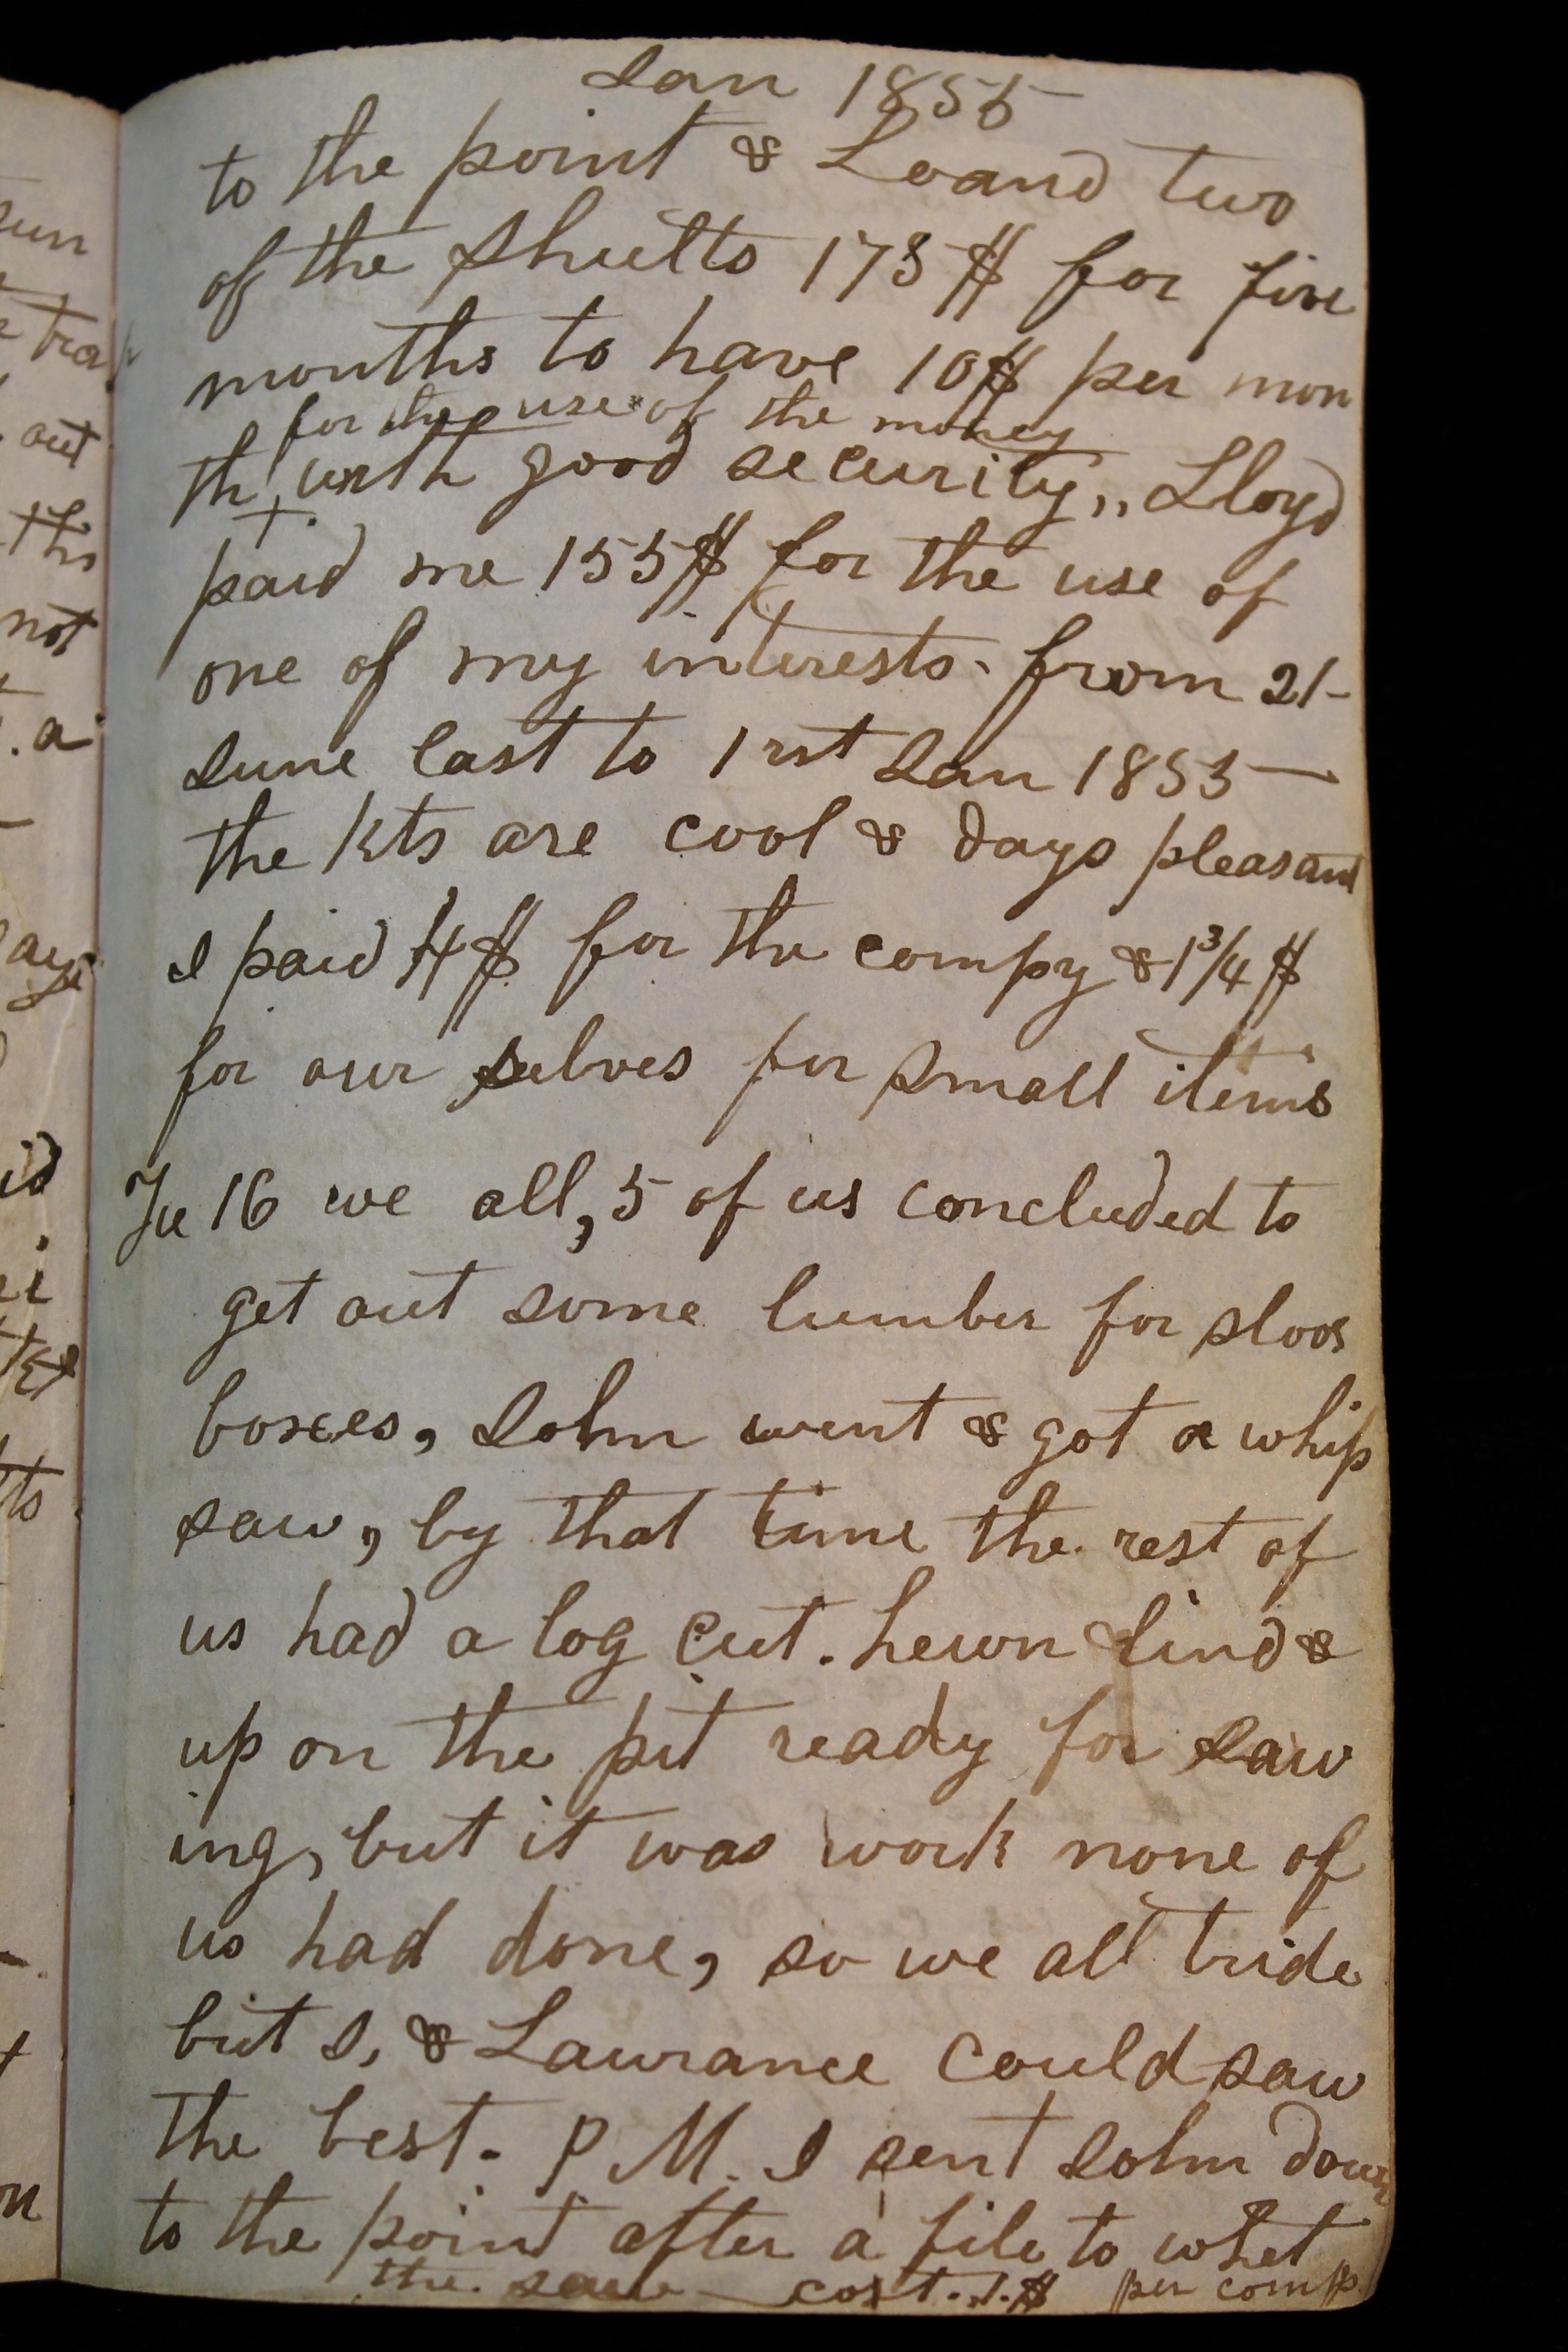 Jan 1855
to the point & Loand two
of the Shults 175$ for five
months to have 10$ per mon
for the use of the money
th with good security,, Lloyd
paid me 155$ for the use of
one of my interests. from 21
June last to 1rst Jan 1855 —
the Nts are cool & days pleasant
I paid 4$ for the compy & 1 3/4 $
for our selves for small items
Tu 16 we all, 5 of us concluded to
get out some lumber for sloos
boxes, John went & got a whip
saw, by that time the rest of
us had a log cut. hewn & lind &
up on the pit ready for saw
ing, but it was work none of
us had done, so we all tride
but J, & Lawrance could saw
the best. P M. I sent John down
to the point after a file to whet
the saw — cost. 1.$ per comp.